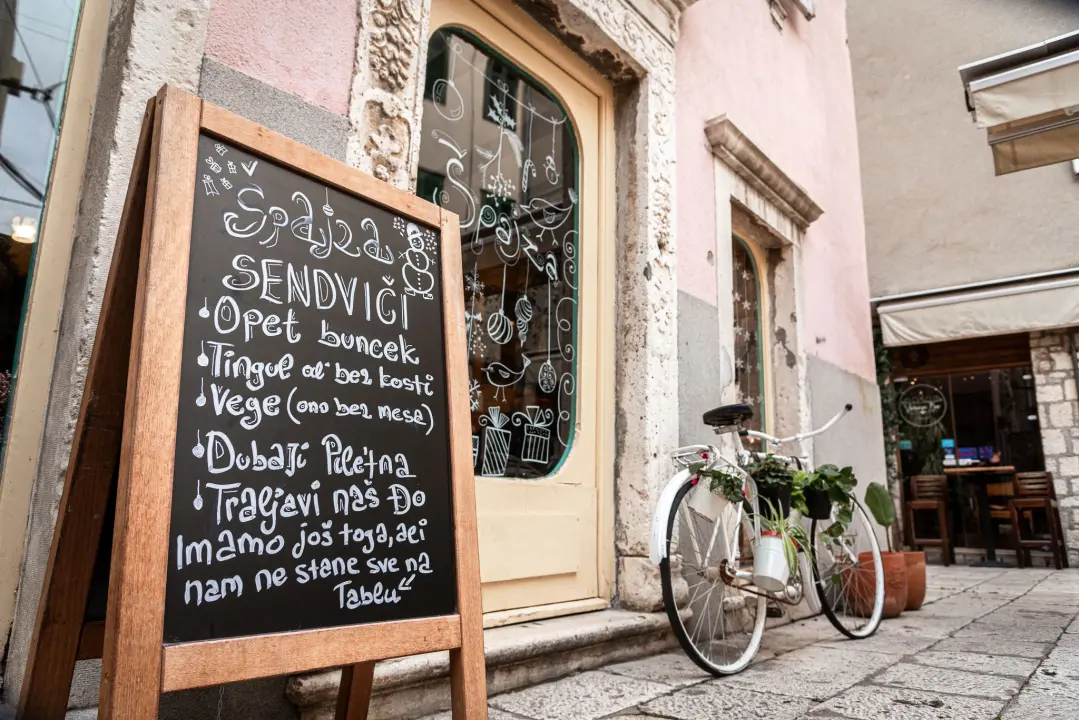 Spajza
SENDVIČI
Opet buncek
Tingul al' bez kosti
Vege (ono bez mesa)
Dubaji Piletna
Traljavi naš Đo
Imamo još toga, aei
nam ne stane sve na
Tablu